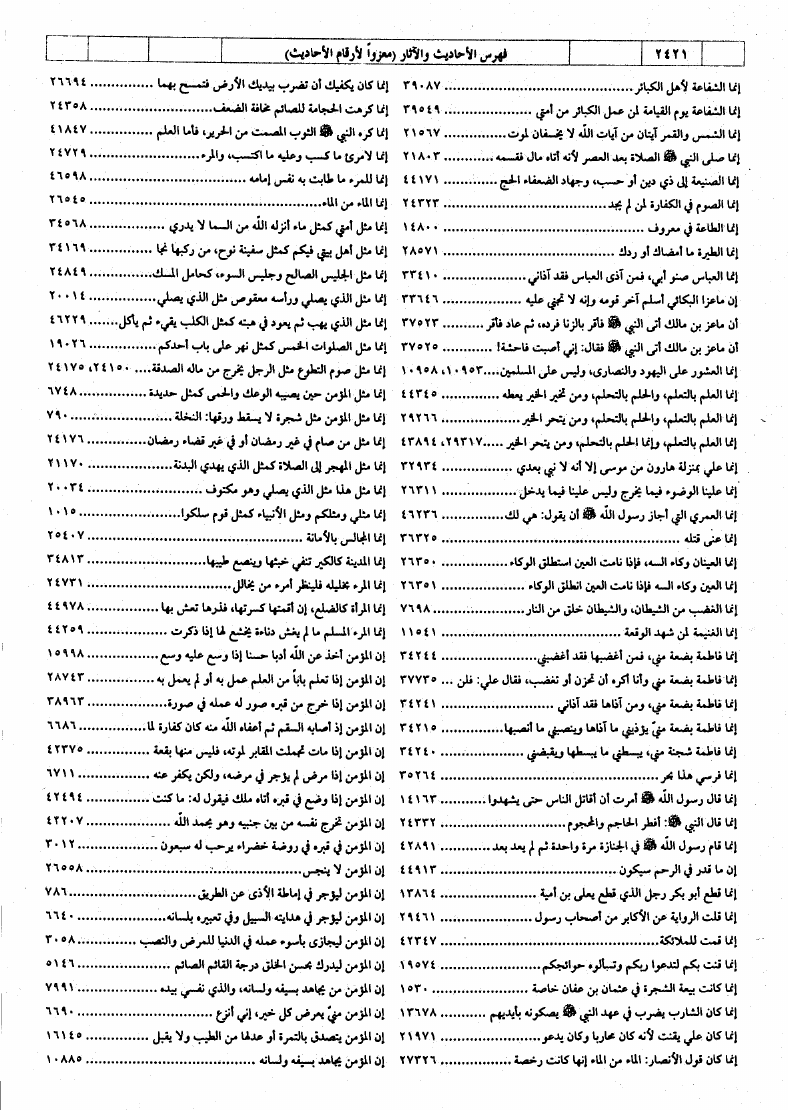 ٢٤٢١ فهرس الأحاديث والآثار (معزواً لأرقام الأحاديث)
إنما الشفاعة لأهل الكبائر ٣٩٠٨٧
إنما الشفاعة يوم القيامة لمن عمل الكبائر من أمتي ٣٩٥٤٩
إنما الشمس والقمر آيتان من آيات الله لا يخسفان لموت ٢١٥٦٧
إنما صلى النبي ﷺ الصلاة بعد العصر لأنه أتاه مال فقسمه ٢١٨٠٣
إنما الصنيعة إلى ذي دين أو حسب، وجهاد الضعفاء الحج ٤٤١٧١
إنما الصوم في الكفارة لمن لم يجد ٢٤٣٢٣
إنما الطاعة في معروف ١٤٨٠٠
إنما الطيرة ما أمضاك أو ردك ٢٨٥٧١
إنما العباس صنو أبي، فمن آذى العباس فقد آذاني ٣٣٤١٠
إن ماعزا البكائي أسلم آخر قومه وإنه لا تجني عليه ٣٣٦٤٦
أن ماعز بن مالك أتى النبي ﷺ فأقر بالزنا فرده، ثم عاد فأقر ٣٧٥٢٣
أن ماعز بن مالك أتى النبي ﷺ فقال: إني أصبت فاحشة! ٣٧٥٢٥
إنما العشور على اليهود والنصارى، وليس على المسلمين ١٠٩٥٣، ١٠٩٥٨
إنما العلم بالتعلم، والحلم بالتحلم، ومن تخير الخير يعطه ٤٤٣٤٥
إنما العلم بالتعلم، والحلم بالتحلم، ومن يتحر الخير ٢٩٢٦٦
إنما العلم بالتعلم، وإنما الحلم بالتحلم، ومن يتحر الخير ٢٩٣١٧، ٤٣٨٩٤
إنما علي بمنزلة هارون من موسى إلا أنه لا نبي بعدي ٣٢٩٣٤
إنما علينا الوضوء فيما يخرج وليس علينا فيما يدخل ٢٦٣١١
إنما العمري التي أجاز رسول الله ﷺ أن يقول: هي لك ٤٦٢٣٦
إنما عنى قتله ٣٦٣٢٥
إنما العينان وكاء السه، فإذا نامت العين استطلق الوكاء ٢٦٣٥٠
إنما العين وكاء السه فإذا نامت العين انطلق الوكاء ٢٦٣٥١
إنما الغضب من الشيطان، والشيطان خلق من النار ٧٦٩٨
إنما الغنيمة لمن شهد الوقعة ١١٥٤١
إنما فاطمة بضعة مني، فمن أغضبها فقد أغضبني ٣٤٢٤٤
إنما فاطمة بضعة مني وأنا أكره أن تحزن أو تغضب، فقال علي: فلن ٣٧٧٣٥
إنما فاطمة بضعة مني، ومن آذاها فقد آذاني ٣٤٢٤١
إنما فاطمة بضعة منيّ يؤذيني ما آذاها وينصبني ما أنصبها ٣٤٢١٥
إنما فاطمة شجنة مني، يبسطني ما يبسطها ويقبضني ٣٤٢٤٠
إنما فرسي هذا بحر ٣٥٢٦٤
إنما قال رسول الله ﷺ أمرت أن أقاتل الناس حتى يشهدوا ١٤١٦٣
إنما قال النبي ﷺ: أفطر الحاجم والمحجوم ٢٤٣٣٢
إنما قام رسول الله ﷺ في الجنازة مرة واحدة ثم لم يعد بعد ٤٢٨٩١
إن ما قدر في الرحم سيكون ٤٤٩١٣
إنما قطع أبو بكر رجل الذي قطع يعلى بن أمية ١٣٨٦٤
إنما قلت الرواية عن الأكابر من أصحاب رسول ٢٩٤٦١
إنما قمت للملائكة ٤٢٣٤٧
إنما قنت بكم لتدعوا ربكم وتسألوه حوائجكم ١٩٥٧٤
إنما كانت بيعة الشجرة في عثمان بن عفان خاصة ١٥٣٠
إنما كان الشارب يضرب في عهد النبي ﷺ يصكونه بأيديهم ١٣٦٧٨
إنما كان علي يقنت لأنه كان محاربا وكان يدعو ٢١٩٧١
إنما كان قول الأنصار: الماء من الماء إنها كانت رخصة ٢٧٣٢٦
إنما كان يكفيك أن تضرب بيديك الأرض فتمسح بهما ٢٦٦٩٤
إنما كرهت الحجامة للصائم مخافة الضعف ٢٤٣٥٨
إنما كره النبي ﷺ الثوب المصمت من الحرير، فأما العلم ٤١٨٤٧
إنما لامرئ ما كسب وعليه ما اكتسب، والمرء ٢٤٧٢٩
إنما للمرء ما طابت به نفس إمامه ٤٦٥٩٨
إنما الماء من الماء ٢٦٥٤٥
إنما مثل أمتي كمثل ماء أنزله الله من السما لا يدري ٣٤٥٦٨
إنما مثل أهل بيتي فيكم كمثل سفينة نوح، من ركبها نجا ٣٤١٦٩
إنما مثل الجليس الصالح وجليس السوء، كحامل المسك ٢٤٨٤٩
إنما مثل الذي يصلي ورأسه معقوص مثل الذي يصلي ٢٠٠١٤
إنما مثل الذي يهب ثم يعود في هبته كمثل الكلب يقيء ثم يأكل ٤٦٢٢٩
إنما مثل الصلوات الخمس كمثل نهر على باب أحدكم ١٩٠٢٦
إنما مثل صوم التطوع مثل الرجل يخرج من ماله الصدقة ٢٤١٥٠، ٢٤١٧٥
إنما مثل المؤمن حين يصيبه الوعك والحمى كمثل حديدة ٦٧٤٨
إنما مثل المؤمن مثل شجرة لا يسقط ورقها: النخلة ٧٩٠
إنما مثل من صام في غير رمضان أو في غير قضاء رمضان ٢٤١٧٦
إنما مثل المهجر إلى الصلاة كمثل الذي يهدي البدنة ٢١١٧٠
إنما مثل هذا مثل الذي يصلي وهو مكتوف ٢٠٠٣٤
إنما مثلي ومثلكم ومثل الأنبياء كمثل قوم سلكوا ١٠١٥
إنما المجالس بالأمانة ٢٥٤٠٧
إنما المدينة كالكير تنفي خبثها وينصع طيبها ٣٤٨١٣
إنما المرء بخليله فلينظر أمرء من يخالل ٢٤٧٣١
إنما المرأة كالضلع، إن أقمتها كسرتها، فذرها تعش بها ٤٤٩٧٨
إنما المرء المسلم ما لم يغش دناءة يخشع لها إذا ذكرت ٤٤٢٥٩
إن المؤمن أخذ عن الله أدبا حسنا إذا وسع عليه وسع ١٥٩٩٨
إن المؤمن إذا تعلم باباً من العلم عمل به أو لم يعمل به ٢٨٧٤٣
إن المؤمن إذا خرج من قبره صور له عمله في صورة ٣٨٩٦٣
إن المؤمن إذ أصابه السقم ثم أعفاه الله منه كان كفارة لما ٦٦٨٦
إن المؤمن إذا مات تجملت المقابر لموته، فليس منها بقعة ٤٢٣٧٥
إن المؤمن إذا مرض لم يؤجر في مرضه، ولكن يكفر عنه ٦٧١١
إن المؤمن إذا وضع في قبره أتاه ملك فيقول له: ما كنت ٤٢٤٩٤
إن المؤمن تخرج نفسه من بين جنبيه وهو يحمد الله ٤٢٢٠٧
إن المؤمن في قبره في روضة خضراء يرحب له سبعون ٣٠١٢
إن المؤمن لا ينجس ٢٦٥٥٨
إن المؤمن ليؤجر في إماطة الأذى عن الطريق ٧٨٦
إن المؤمن ليؤجر في هدايته السبيل وفي تعبيره بلسانه ٦٦٤٠
إن المؤمن ليجازى بأسوء عمله في الدنيا للمرض والنصب ٣٠٥٨
إن المؤمن ليدرك بحسن الخلق درجة القائم الصائم ٥١٤٦
إن المؤمن من يجاهد بسيفه ولسانه، والذي نفسي بيده ٧٩٩١
إن المؤمن منيّ يعرض كل خير، إني أنزع ٦٦٩٠
إن المؤمن يتصدق بالتمرة أو عدلها من الطيب ولا يقبل ١٦١٤٥
إن المؤمن يجاهد بسيفه ولسانه ١٠٨٨٥